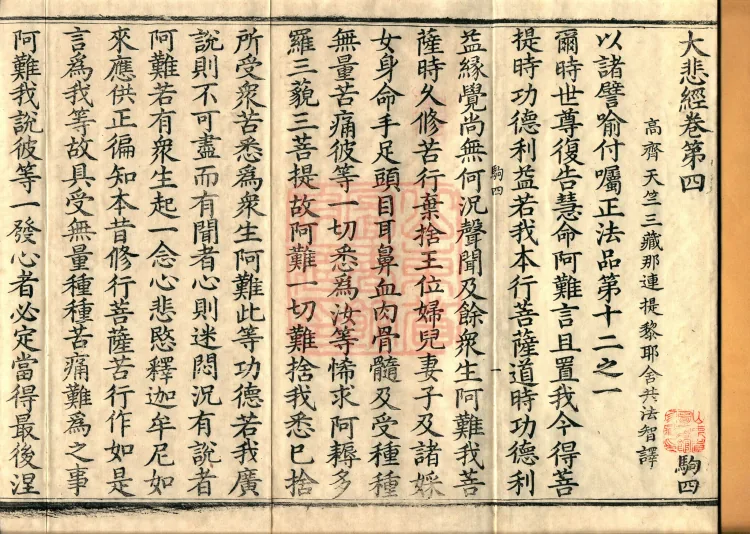 大悲經卷第四
駒四
高齊天竺三藏那連提黎耶舍共法智譯
以諸譬喻付囑正法品第十二之一
爾時世尊復告慧命阿難言且置我今得菩
提時功德利益若我本行菩薩道時功德利
駒四
一
益緣覺尚無何況聲聞及餘衆生阿難我菩
薩時久修苦行棄捨王位婦兒妻子及諸婇
女身命手足頭目耳鼻血肉骨髓及受種種
無量苦痛彼等一切悉爲汝等悕求阿耨多
羅三藐三菩提故阿難一切難捨我悉已捨
所受衆苦悉爲衆生阿難此等功德若我廣
說則不可盡而有聞者心則迷悶況有說者
阿難若有衆生起一念心悲愍釋迦牟尼如
來應供正徧知本昔修行菩薩苦行作如是
言爲我等故具受無量種種苦痛難爲之事
阿難我說彼等一發心者必定當得最後涅